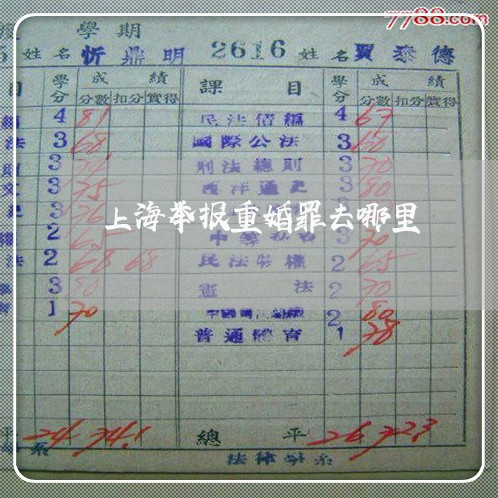 7788.com
學期
姓名 忻鼎明 2616 姓名 賈泰德
目 學分 成績 課目 學分 成績
分數 扣分 實得 分數 扣分 實得
4 81 民法債編 4 67
法 3 68 國際公法 3 60
3 刑法總則 3 70
3 75 西洋通史 3 80
3 76 3
上海举报重婚罪去哪里
2 65 3 70
法 2 68 68 民法物權 2 65
3 80 憲法 2 70
1 70 2 80
普通體育 1 78
平 24 74.1 總平 26 72.3
系 法律學系